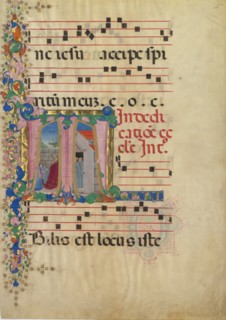 ne iesu accipe spi
ritum meuz. e. o. e.
In dedi
catiōe ec
cl'e Int'.
T
Bilis est locus iste